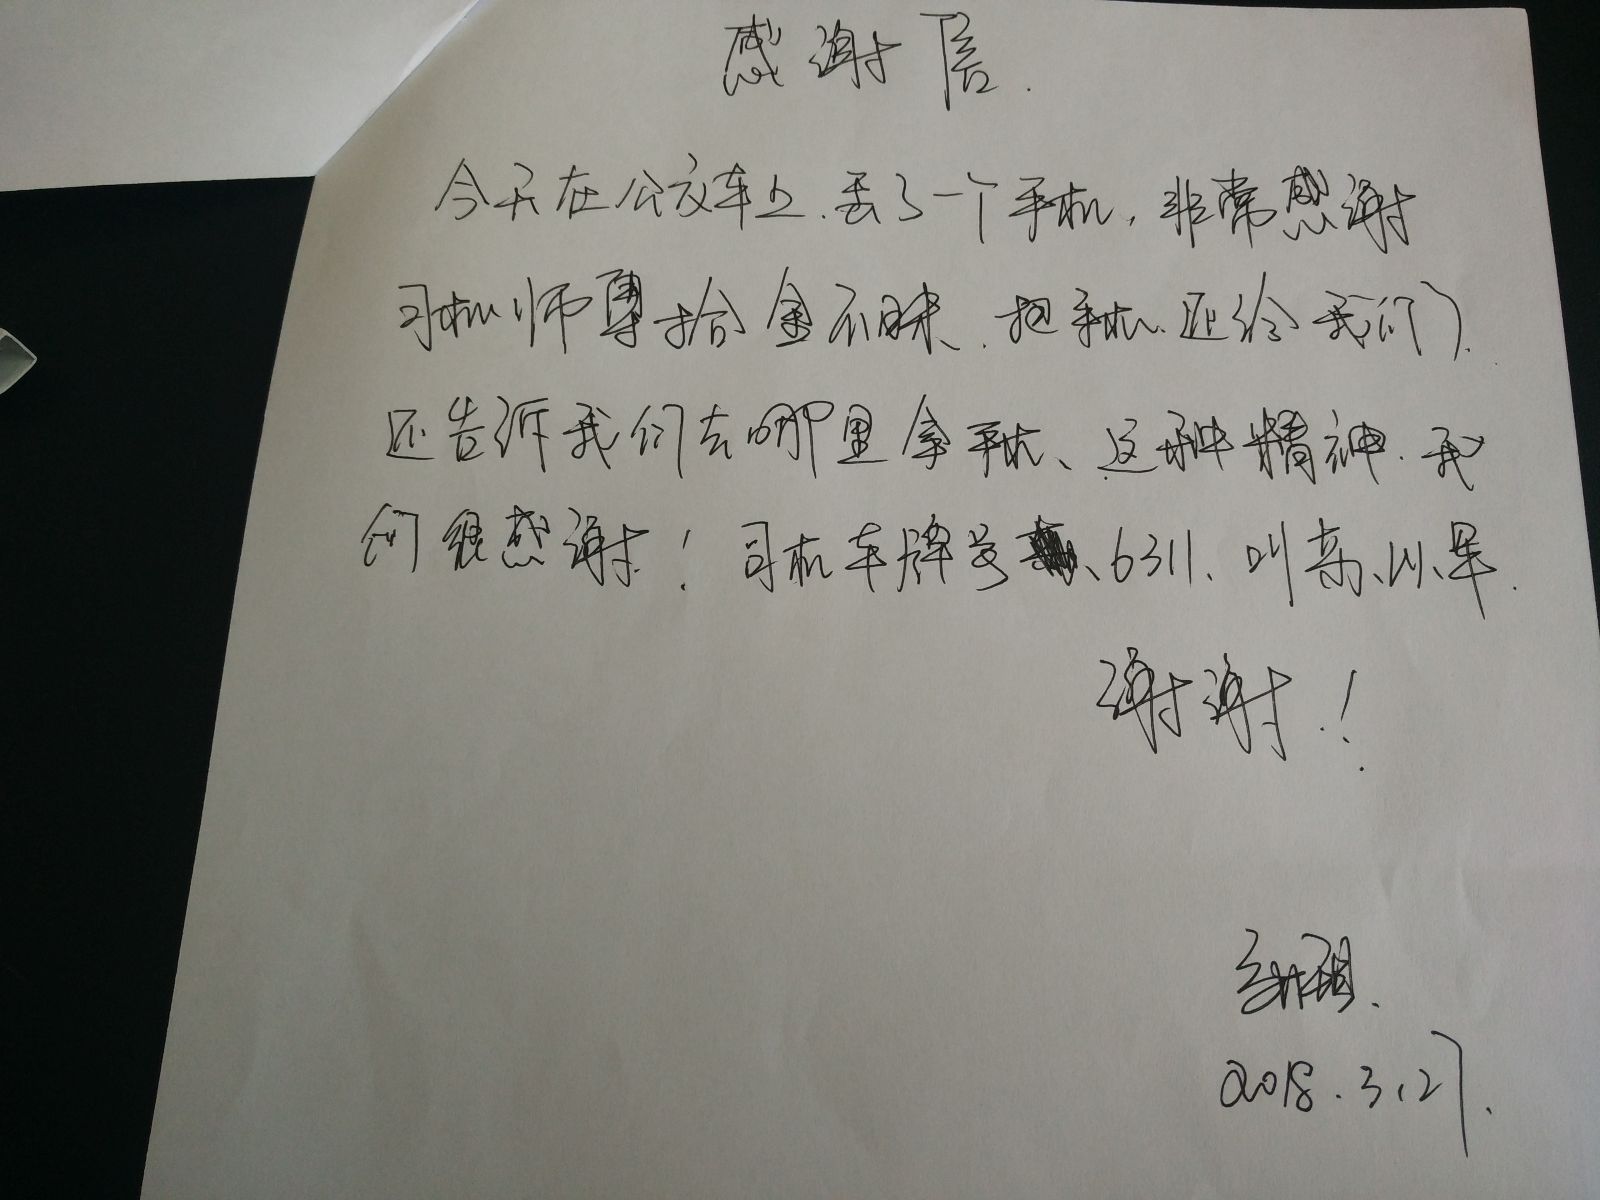 感谢信.
今天在公交车上.丢了一个手机,非常感谢
司机师傅拾金不昧、.把手机.还给我们.
还告诉我们去哪里拿手机、这种精神.我
们很感谢!司机车牌号、6311、叫
谢谢!
2018.3.27.